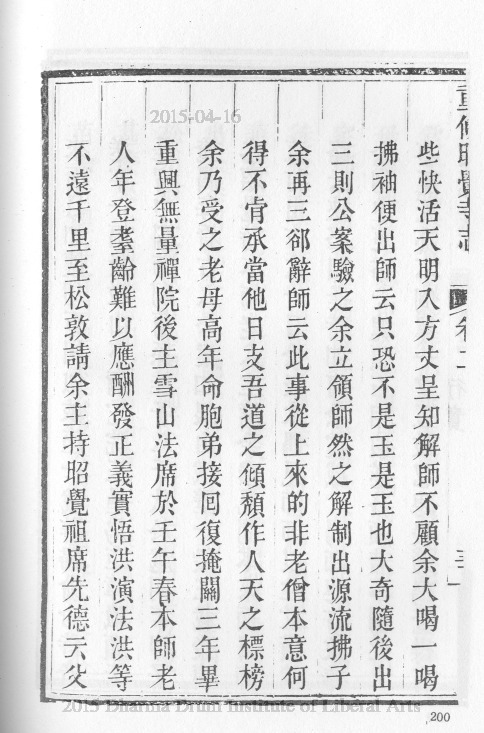 重修昭覺寺志
卷二
些快活天明入方丈呈知解師不顧余大喝一喝
拂袖便出師云只恐不是玉是玉也大奇隨後出
三則公案驗之余立領師然之解制出源流拂子
余再三郤辭師云此事從上來的非老僧本意何
得不肯承當他日支吾道之傾頹作人天之標榜
余乃受之老母高年命胞弟接囘復掩關三年畢
重興無量禪院後主雪山法席於壬午春本師老
人年登耋齡難以應酬發正義實悟洪演法洪等
不遠千里至松敦請余主持昭覺祖席先德云父
2015-04-16
2015 Dharma Drum Institute of Liberal Arts
200